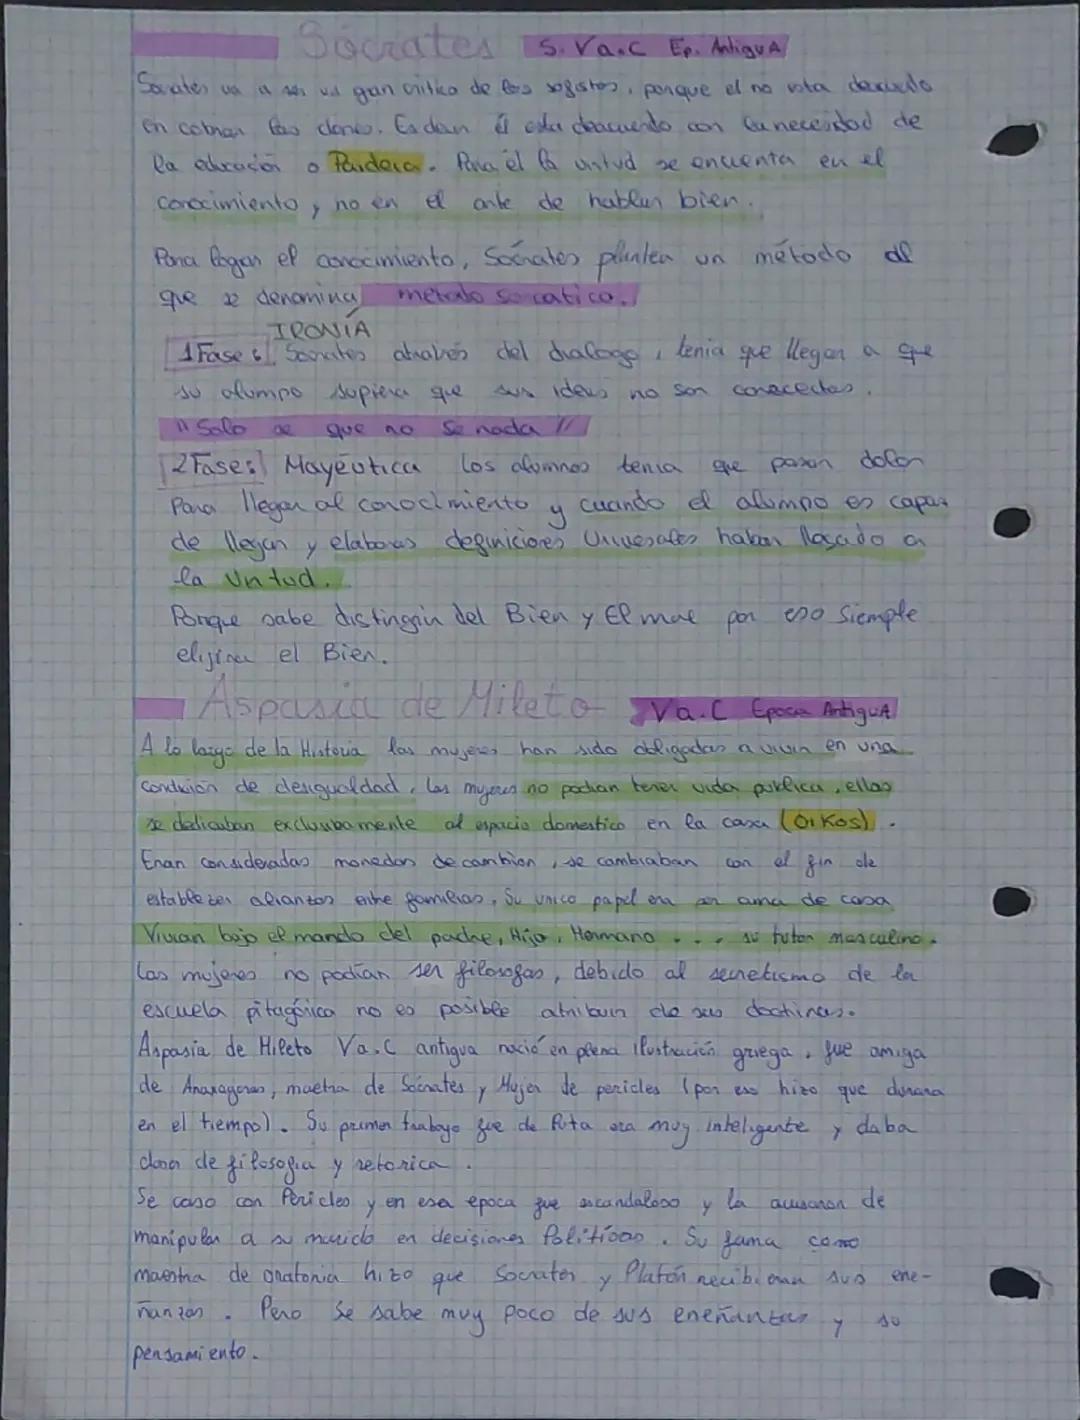 Sócrates S. Va.C Ep. AntiguA
Socrates va a ser un gran critico de los sofistas, porque el no esta deacuerdo
en cobrar las clases. Es dean él esta deacuerdo con la necesidad de
la educación o Paideia. Para él la virtud se encuenta en el
conocimiento, y no en el arte de hablar bien.
Para logar el conocimiento, Sócrates plantea un método al
que se denomina metodo socratico.
IRONÍA
1 Fase: Socrates atraves del dialogo, tenia que llegar a que
su alumno supiera que sus ideas no son correctas.
"Solo se que no se nada"
2 Fase: Mayéutica Los alumnos tenia que pasar dolor
Para llegar al conocimiento y cuando el alumno es capaz
de llegar y elaboras definiciones Universales habra llegado a
la Virtud.
Porque sabe distingir del Bien y El mal por eso Siempre
elijira el Bien.
Aspasia de Mileto Va.C Epoca AntiguA
A lo largo de la Historia las mujeres han sido obligadas a vivir en una
condición de desigualdad. Las mujeres no podian tener vida publica, ellas
se dedicaban exclusibamente al espacio domestico en la casa (Oikos).
Eran consideradas monedas de cambion, se cambiaban con el fin de
establezer alianzas entre familias. Su unico papel era ser ama de casa
Vivian bajo el mando del padre, Hijo, Hermano . . . su tutor masculino.
Las mujeres no podían ser filosofas, debido al secretismo de la
escuela pitagórica no es posible atribuir de sus doctrinas.
Aspasia de Mileto Va.C antigua nació en plena ilustración griega, fue amiga
de Anaxagoras, maetra de Sócrates y Mujer de pericles (por eso hizo que durara
en el tiempo). Su primer trabajo fue de Puta era muy inteligente y daba
clases de filosofia y retorica.
Se caso con Pericles y en esa epoca fue escandaloso y la acusaron de
manipular a su marido en decisiones Políticas. Su fama como
maestra de oratoria hizo que Socrates y Platón recibieran sus ene-
ñanzas. Pero Se sabe muy poco de sus eneñanzas y su
pensamiento.